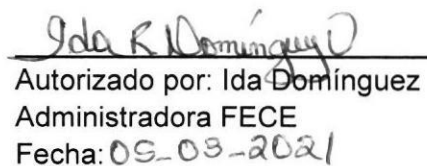 Ida R Domínguez O
Autorizado por: Ida Domínguez
Administradora FECE
Fecha: 05-03-2021